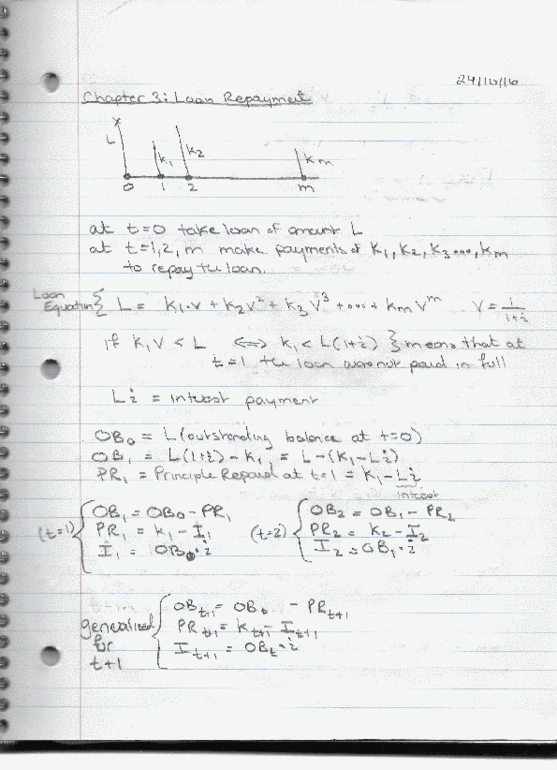 24/10/16
Chapter 3: Loan Repayment
L K1 K2 Km
0 1 2 m
at t=0 take loan of amount L
at t=1,2,m make payments of K1, K2, K3 ..., Km
to repay the loan.
Loan Equation { L = K1·V + K2V² + K3V³ + ... + KmV^m V = 1/(1+i)
if K1V < L ⟺ K1 < L(1+i) } means that at
t=1 the loan was not paid in full
Li = interest payment
OB0 = L (outstanding balance at t=0)
OB1 = L(1+i) - K1 = L - (K1 - Li)
PR1 = Principle Repaid at t=1 = K1 - Li
interest
(t=1) { OB1 = OB0 - PR1 (t=2) { OB2 = OB1 - PR2
PR1 = K1 - I1 PR2 = K2 - I2
I1 = OB0·i I2 = OB1·i
generalized for t+1 { OBt+1 = OB - PRt+1
PRt+1 = Kt+1 - It+1
It+1 = OBt·i